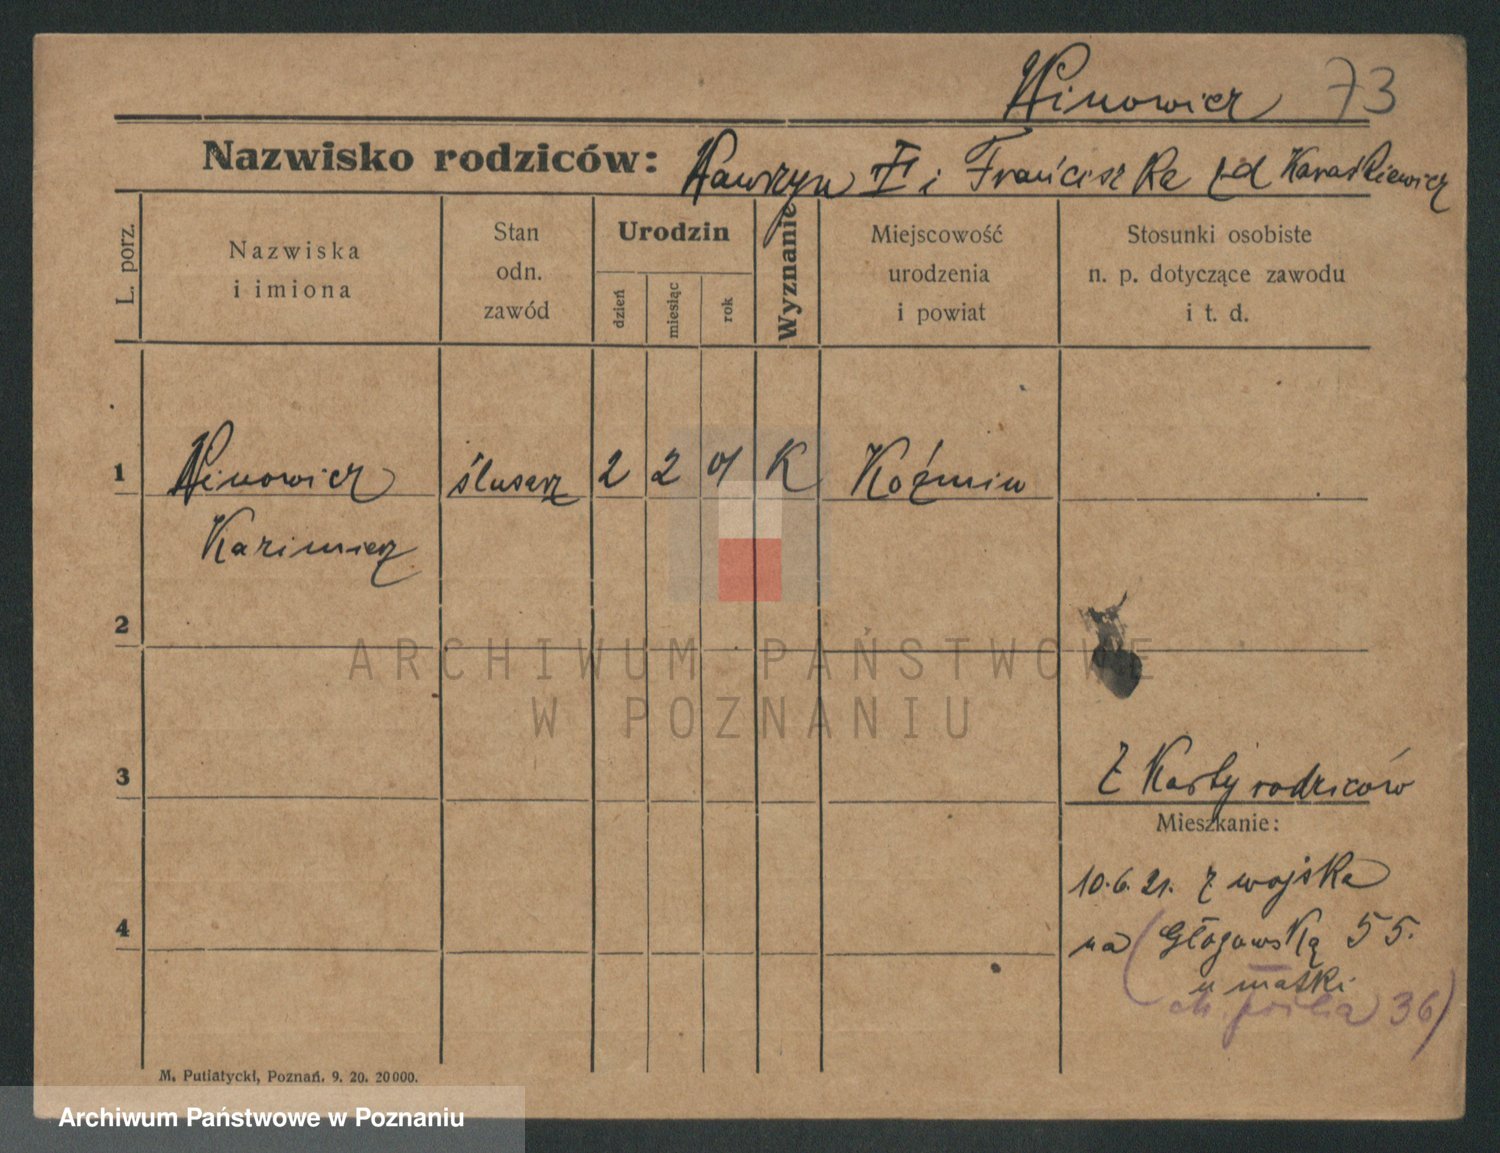 Winowicz 73
Nazwisko rodziców: Wawrzyn i Franciszka z d Karaśkiewicz
L. porz.
Nazwiska
i imiona
Stan
odn.
zawód
Urodzin
dzień
miesiąc
rok
Wyznanie
Miejscowość
urodzenia
i powiat
Stosunki osobiste
n. p. dotyczące zawodu
i t. d.
1 Winowicz ślusarz 2 2 01 K Koźmin
Kazimierz
2
ARCHIWUM PAŃSTWOWE
W POZNANIU
3
Z Karty rodziców
Mieszkanie:
10.6.21. z wojska
4
na (Głogowską 55.
u matki
36)
M. Putiatycki, Poznań. 9. 20. 20000.
Archiwum Państwowe w Poznaniu